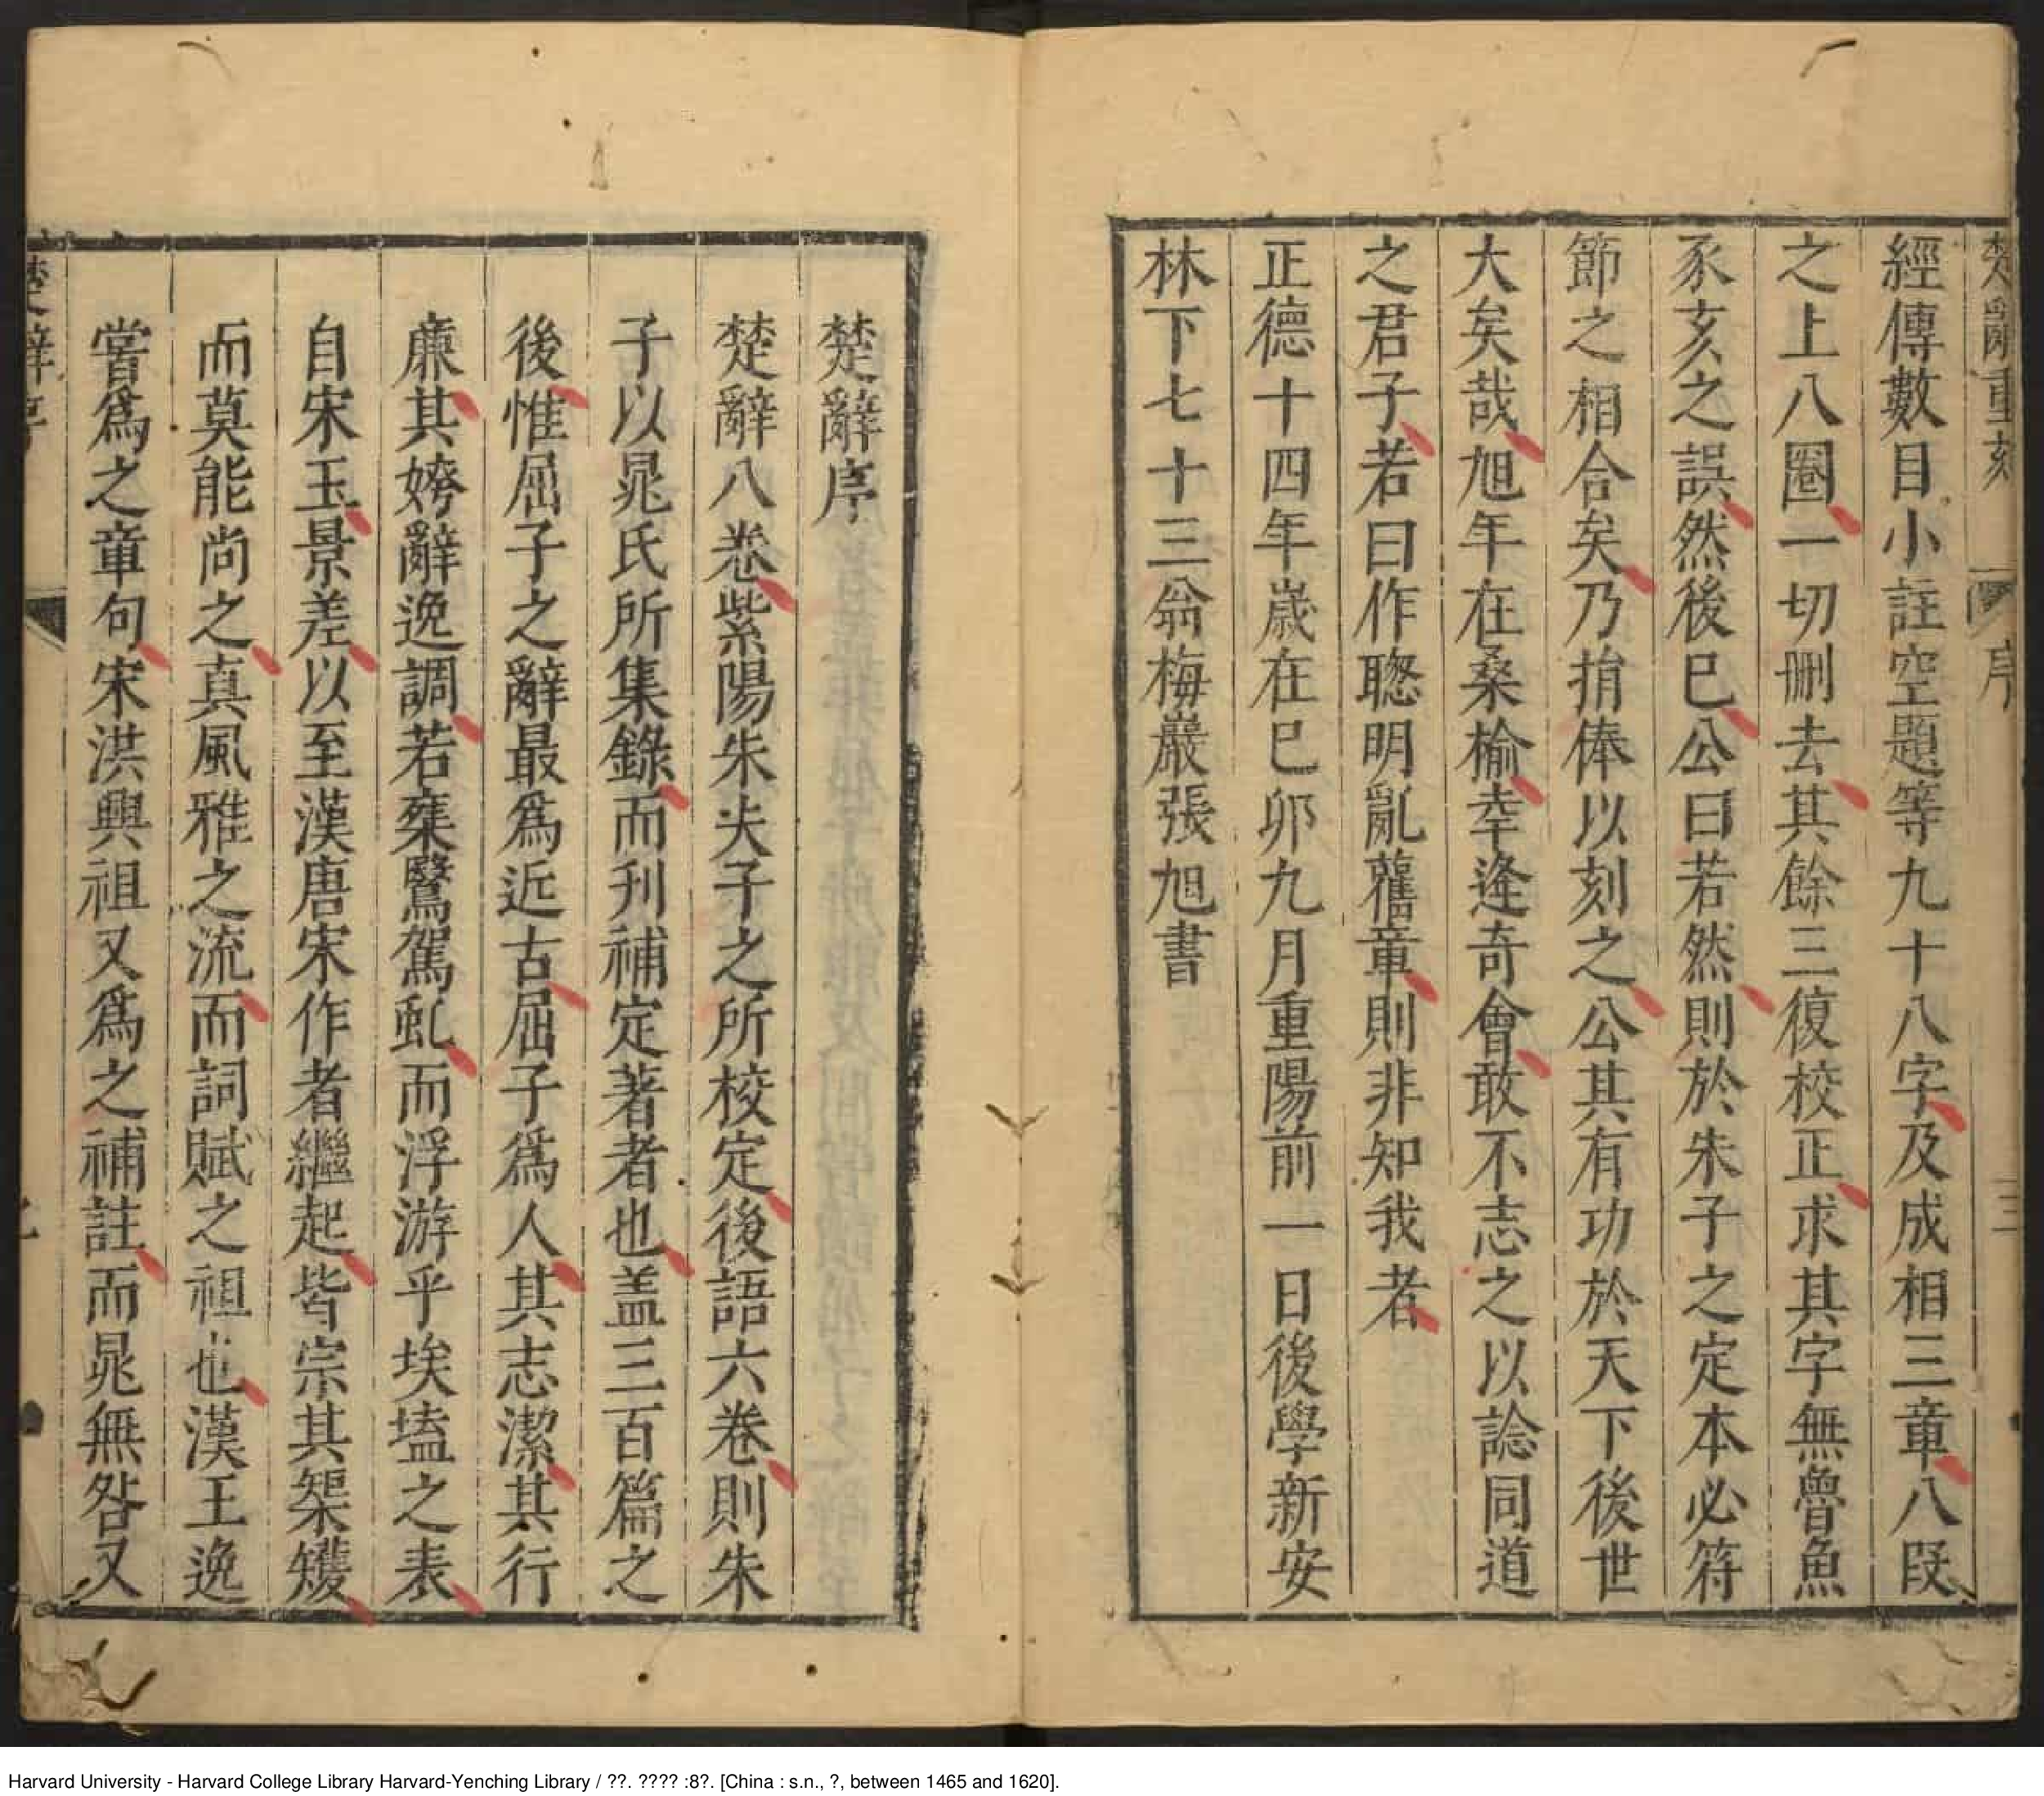 楚辭重刻
序
三
經傳數目小註空題等九十八字及成相三章八段
之上八圈一切刪去其餘三復校正求其字無魯魚
豕亥之誤然後已公曰若然則於朱子之定本必符
節之相合矣乃捐俸以刻之公其有功於天下後世
大矣哉旭年在桑榆幸逢奇會敢不志之以諗同道
之君子若曰作聰明亂舊章則非知我者
正德十四年歲在已卯九月重陽前一日後學新安
林下七十三翁梅巖張旭書
楚辭序
楚辭八卷紫陽朱夫子之所校定後語六卷則朱
子以晁氏所集錄而刋補定著者也盖三百篇之
後惟屈子之辭最爲近古屈子爲人其志潔其行
廉其姱辭逸調若乘鷖駕虬而浮游乎埃壒之表
自宋玉景差以至漢唐宋作者繼起皆宗其榘矱
而莫能尚之真風雅之流而詞賦之祖也漢王逸
嘗爲之章句宋洪興祖又爲之補註而晁無咎又
楚辭序
Harvard University - Harvard College Library Harvard-Yenching Library / ??. ???? :8?. [China : s.n., ?, between 1465 and 1620].